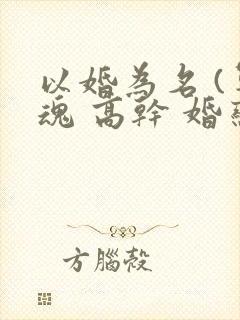 以婚為名(
魂 高幹 婚
方腦殼